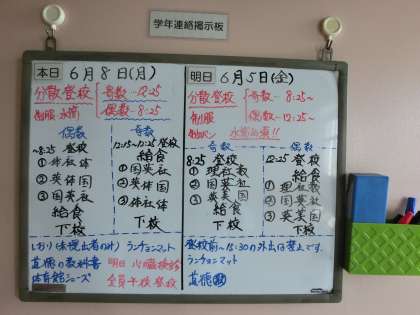 学年連絡掲示板
本日 6月8日(月)
分散登校 奇数 12:25
制服 水筒 偶数 8:25
偶数
~8:25 登校
① 体社体
② 英体国
③ 国英社
給食
下校
奇数
12:15~12:25 登校
給食
① 国英社
② 英体国
③ 体社体
下校
しおり(未提出者のみ) ランチョンマット
道徳の教科書
体育館シューズ
明日 心臓検診
全員午後登校
明日 6月5日(金)
分散登校 奇数 8:25~
制服 偶数 12:25~
奇数
8:25 登校
① 理社数
② 国英社
③ 英美国
給食
下校
偶数
12:25 登校
給食
① 理社数
② 国英社
③ 英美国
下校
登校前~15:30の外出は禁止です。
ランチョンマット
道徳